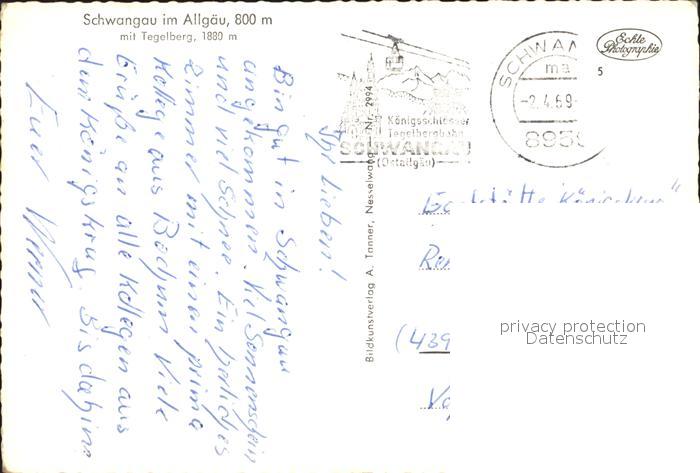 Schwangau im Allgäu, 800 m
mit Tegelberg, 1880 m
Ihr Lieben!
Bin gut in Schwangau
angekommen. Viel Sonnenschein
und viel Schnee. Ein herrliches
Zimmer mit einem prima
Kollege aus Bochum. Viele
Grüße an alle Kollegen aus
dem Königskrug. Bis dahin.
Euer Werner
Bildkunstverlag A. Tanner, Nesselwang Nr. 2994
Königsschlösser
Tegelbergbahn
SCHWANGAU
(Ostallgäu)
SCHWAN
ma
-2.4.69-
895
Echte
Photographie
5
(439
privacy protection
Datenschutz